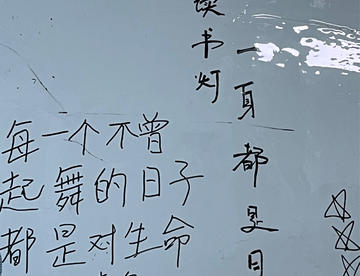 读书灯
一页都是日
每一个不曾
起舞的日子
都是对生命